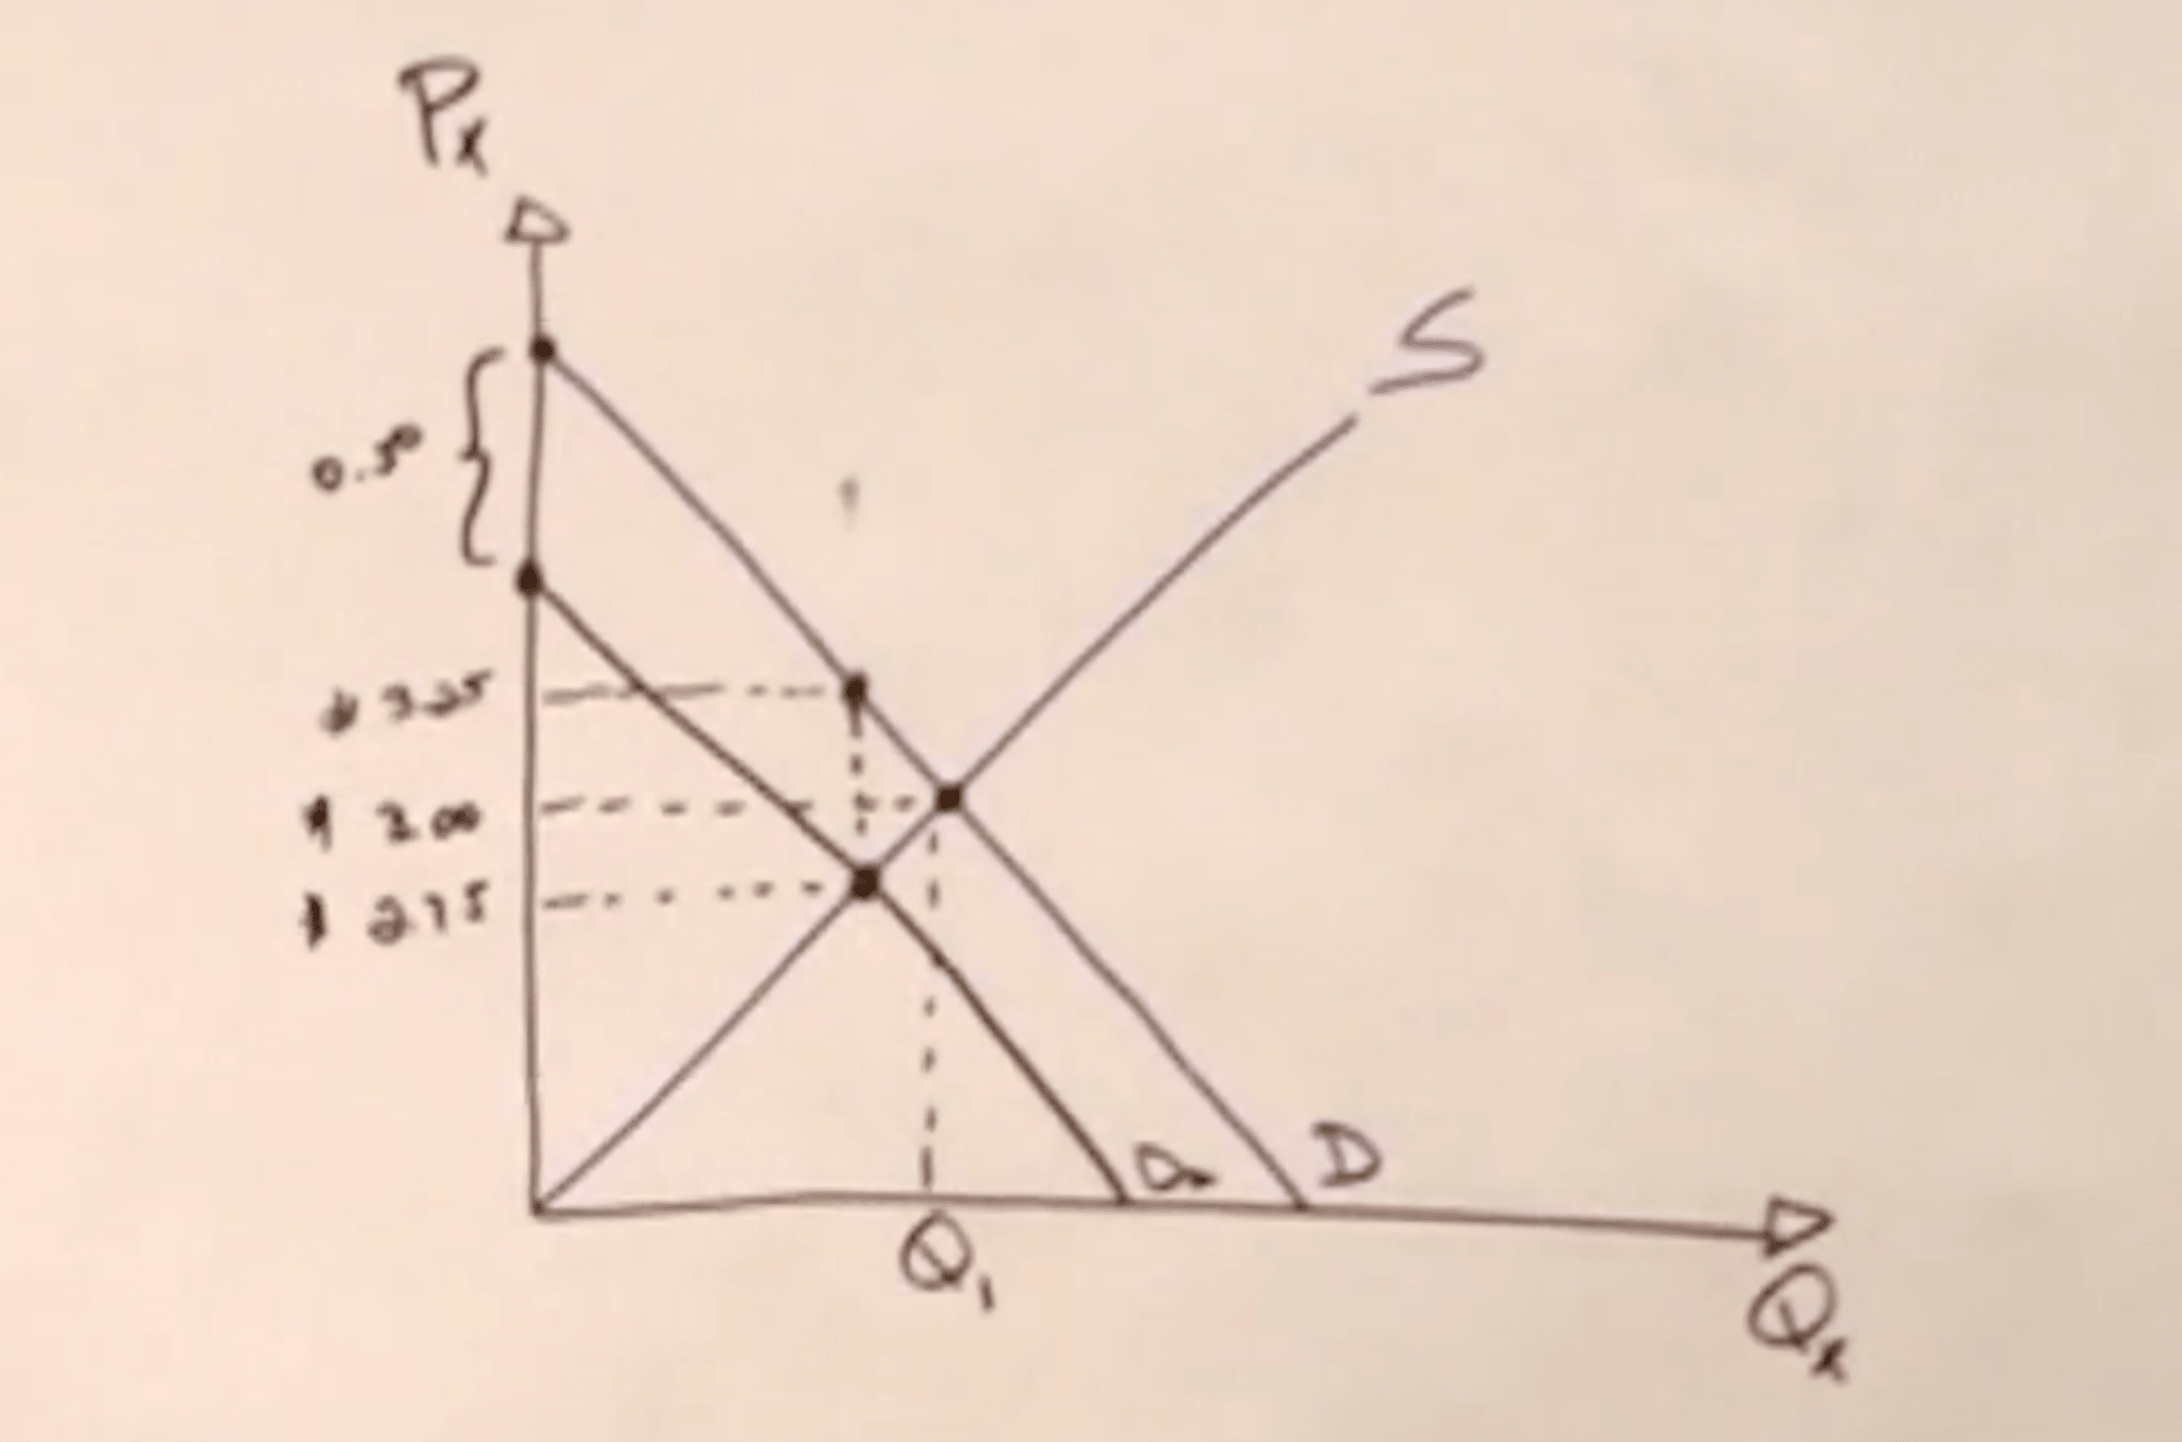 Px
S
0.50
$ 3.25
$ 3.00
$ 2.75
D
Q1
Qx